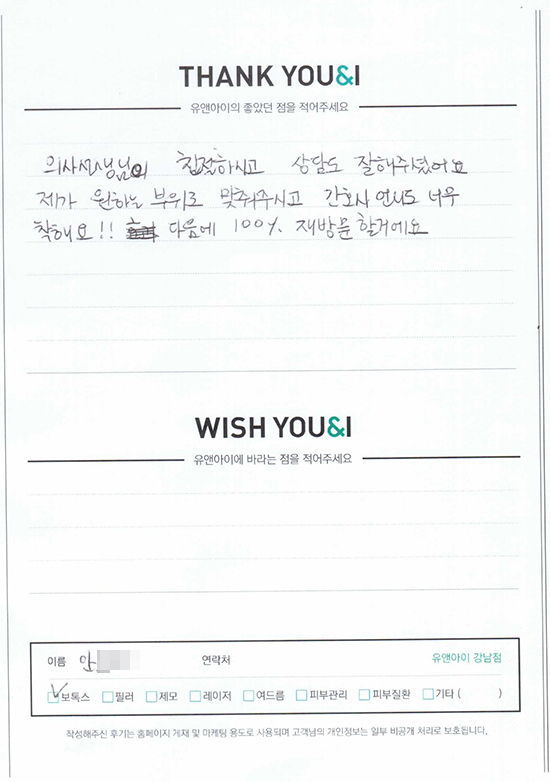 THANK YOU&I
유앤아이의 좋았던 점을 적어주세요
의사선생님이 친절하시고 상담도 잘해주셨어요
제가 원하는 부위로 맞춰주시고 간호사 언니도 너무
착해요!! 다음에 100% 재방문 할거에요
WISH YOU&I
유앤아이에 바라는 점을 적어주세요
이름 안 연락처 유앤아이 강남점
보톡스 필러 제모 레이저 여드름 피부관리 피부질환 기타 ( )
작성해주신 후기는 홈페이지 게재 및 마케팅 용도로 사용되며 고객님의 개인정보는 일부 비공개 처리로 보호됩니다.